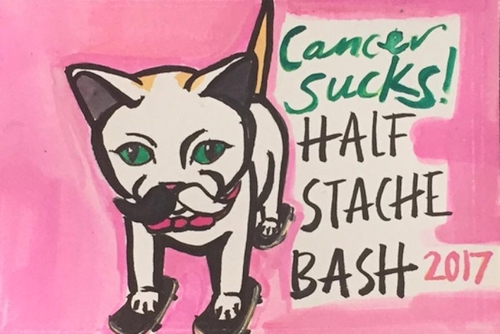 Cancer
sucks!
HALF
STACHE
BASH 2017